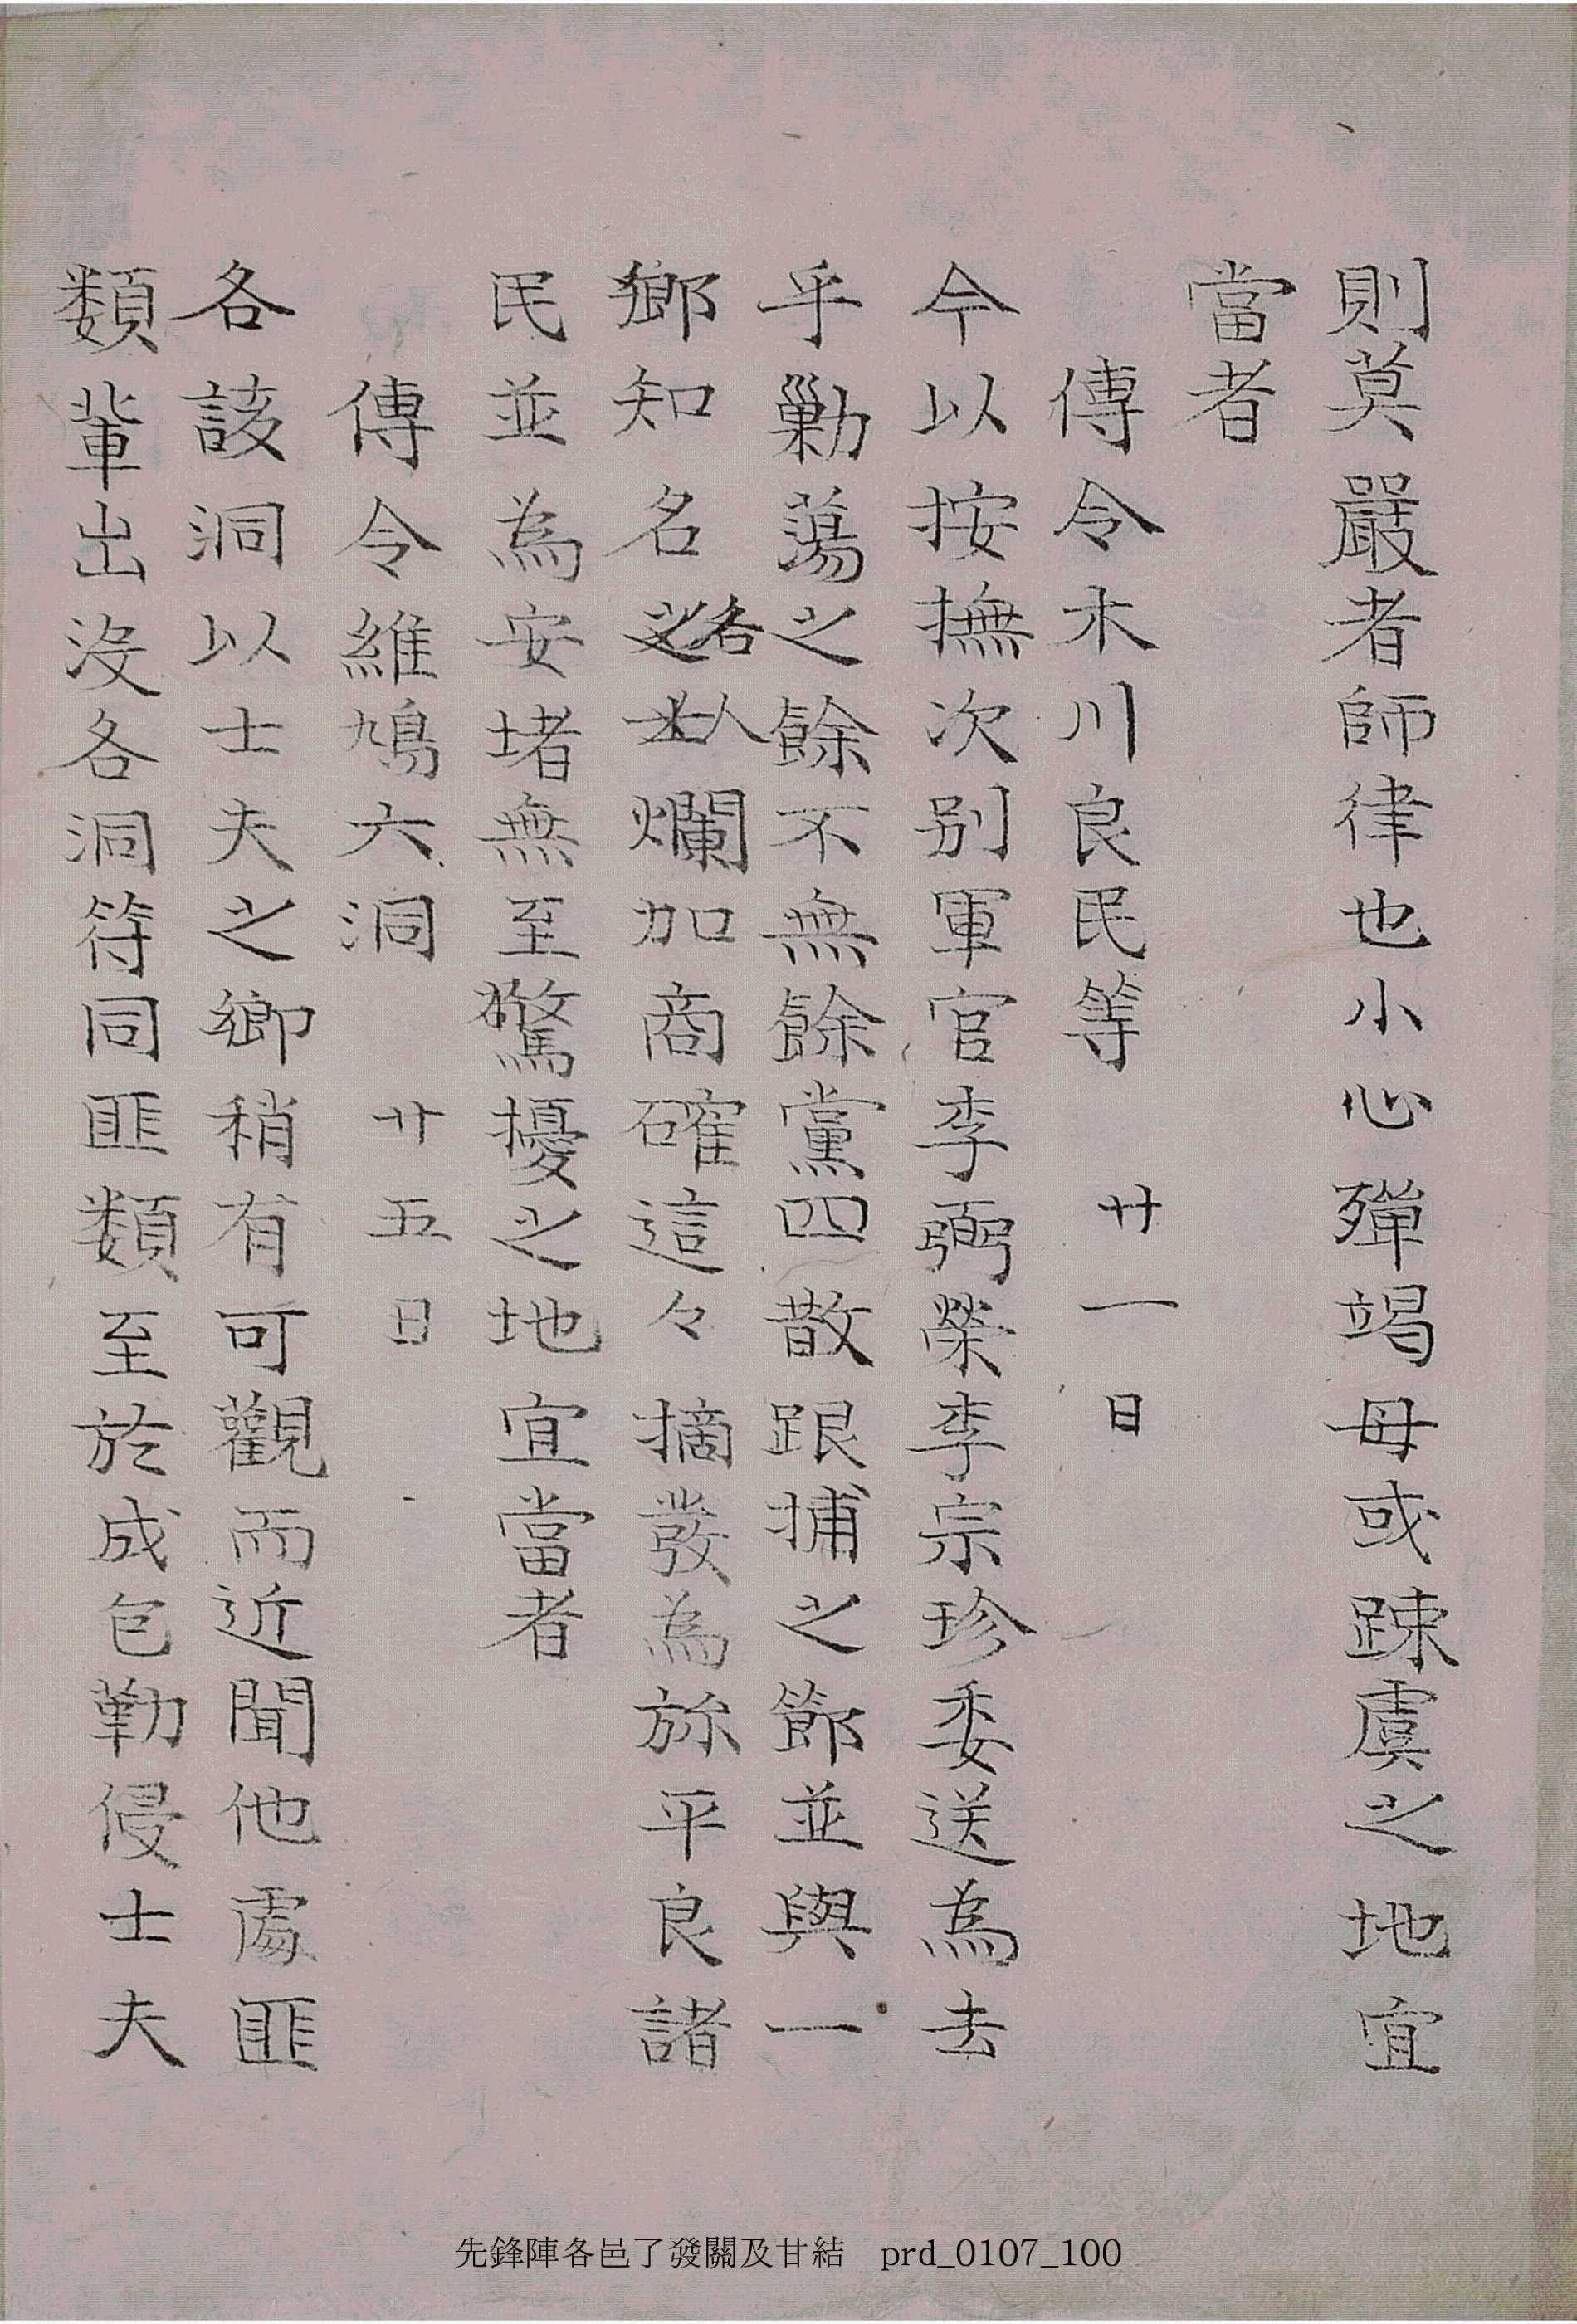 則莫嚴者師律也小心殫竭毋或踈虞之地宜
當者
傳令木川良民等 廿一日
今以按撫次別軍官李弼榮李宗珍委送為去
乎勦蕩之餘不無餘黨四散跟捕之節並與一
鄉知名各人爛加商確這々摘發為旀平良諸
民並為安堵無至驚擾之地宜當者
傳令維鳩六洞 廿五日
各該洞以士夫之鄉稍有可觀而近聞他處匪
類輩出沒各洞符同匪類至於成包勒侵士夫
先鋒陣各邑了發關及甘結 prd_0107_100